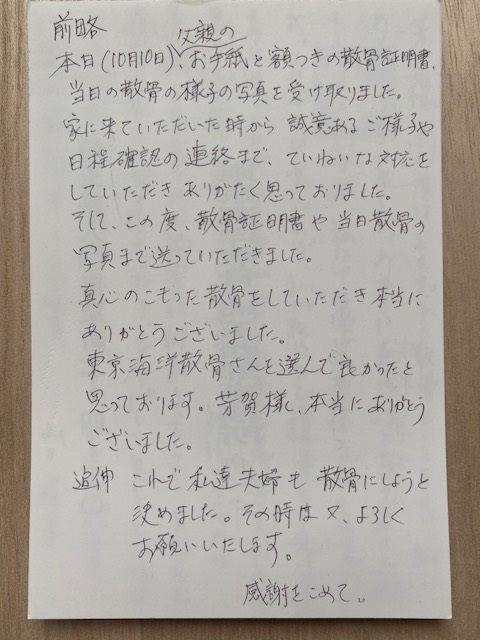 前略
本日(10月10日)、父親のお手紙と額つきの散骨証明書、
当日の散骨の様子の写真を受け取りました。
家に来ていただいた時から 誠意あるご様子や
日程確認の連絡まで、ていねいな対応を
していただき ありがたく思っておりました。
そして、この度、散骨証明書や当日散骨の
写真まで送っていただきました。
真心のこもった散骨をしていただき本当に
ありがとうございました。
東京海洋散骨さんを選んで良かったと
思っております。芳賀様、本当にありがとう
ございました。
追伸 これで私達夫婦も散骨にしようと
決めました。その時は又、よろしく
お願いいたします。
感謝をこめて。